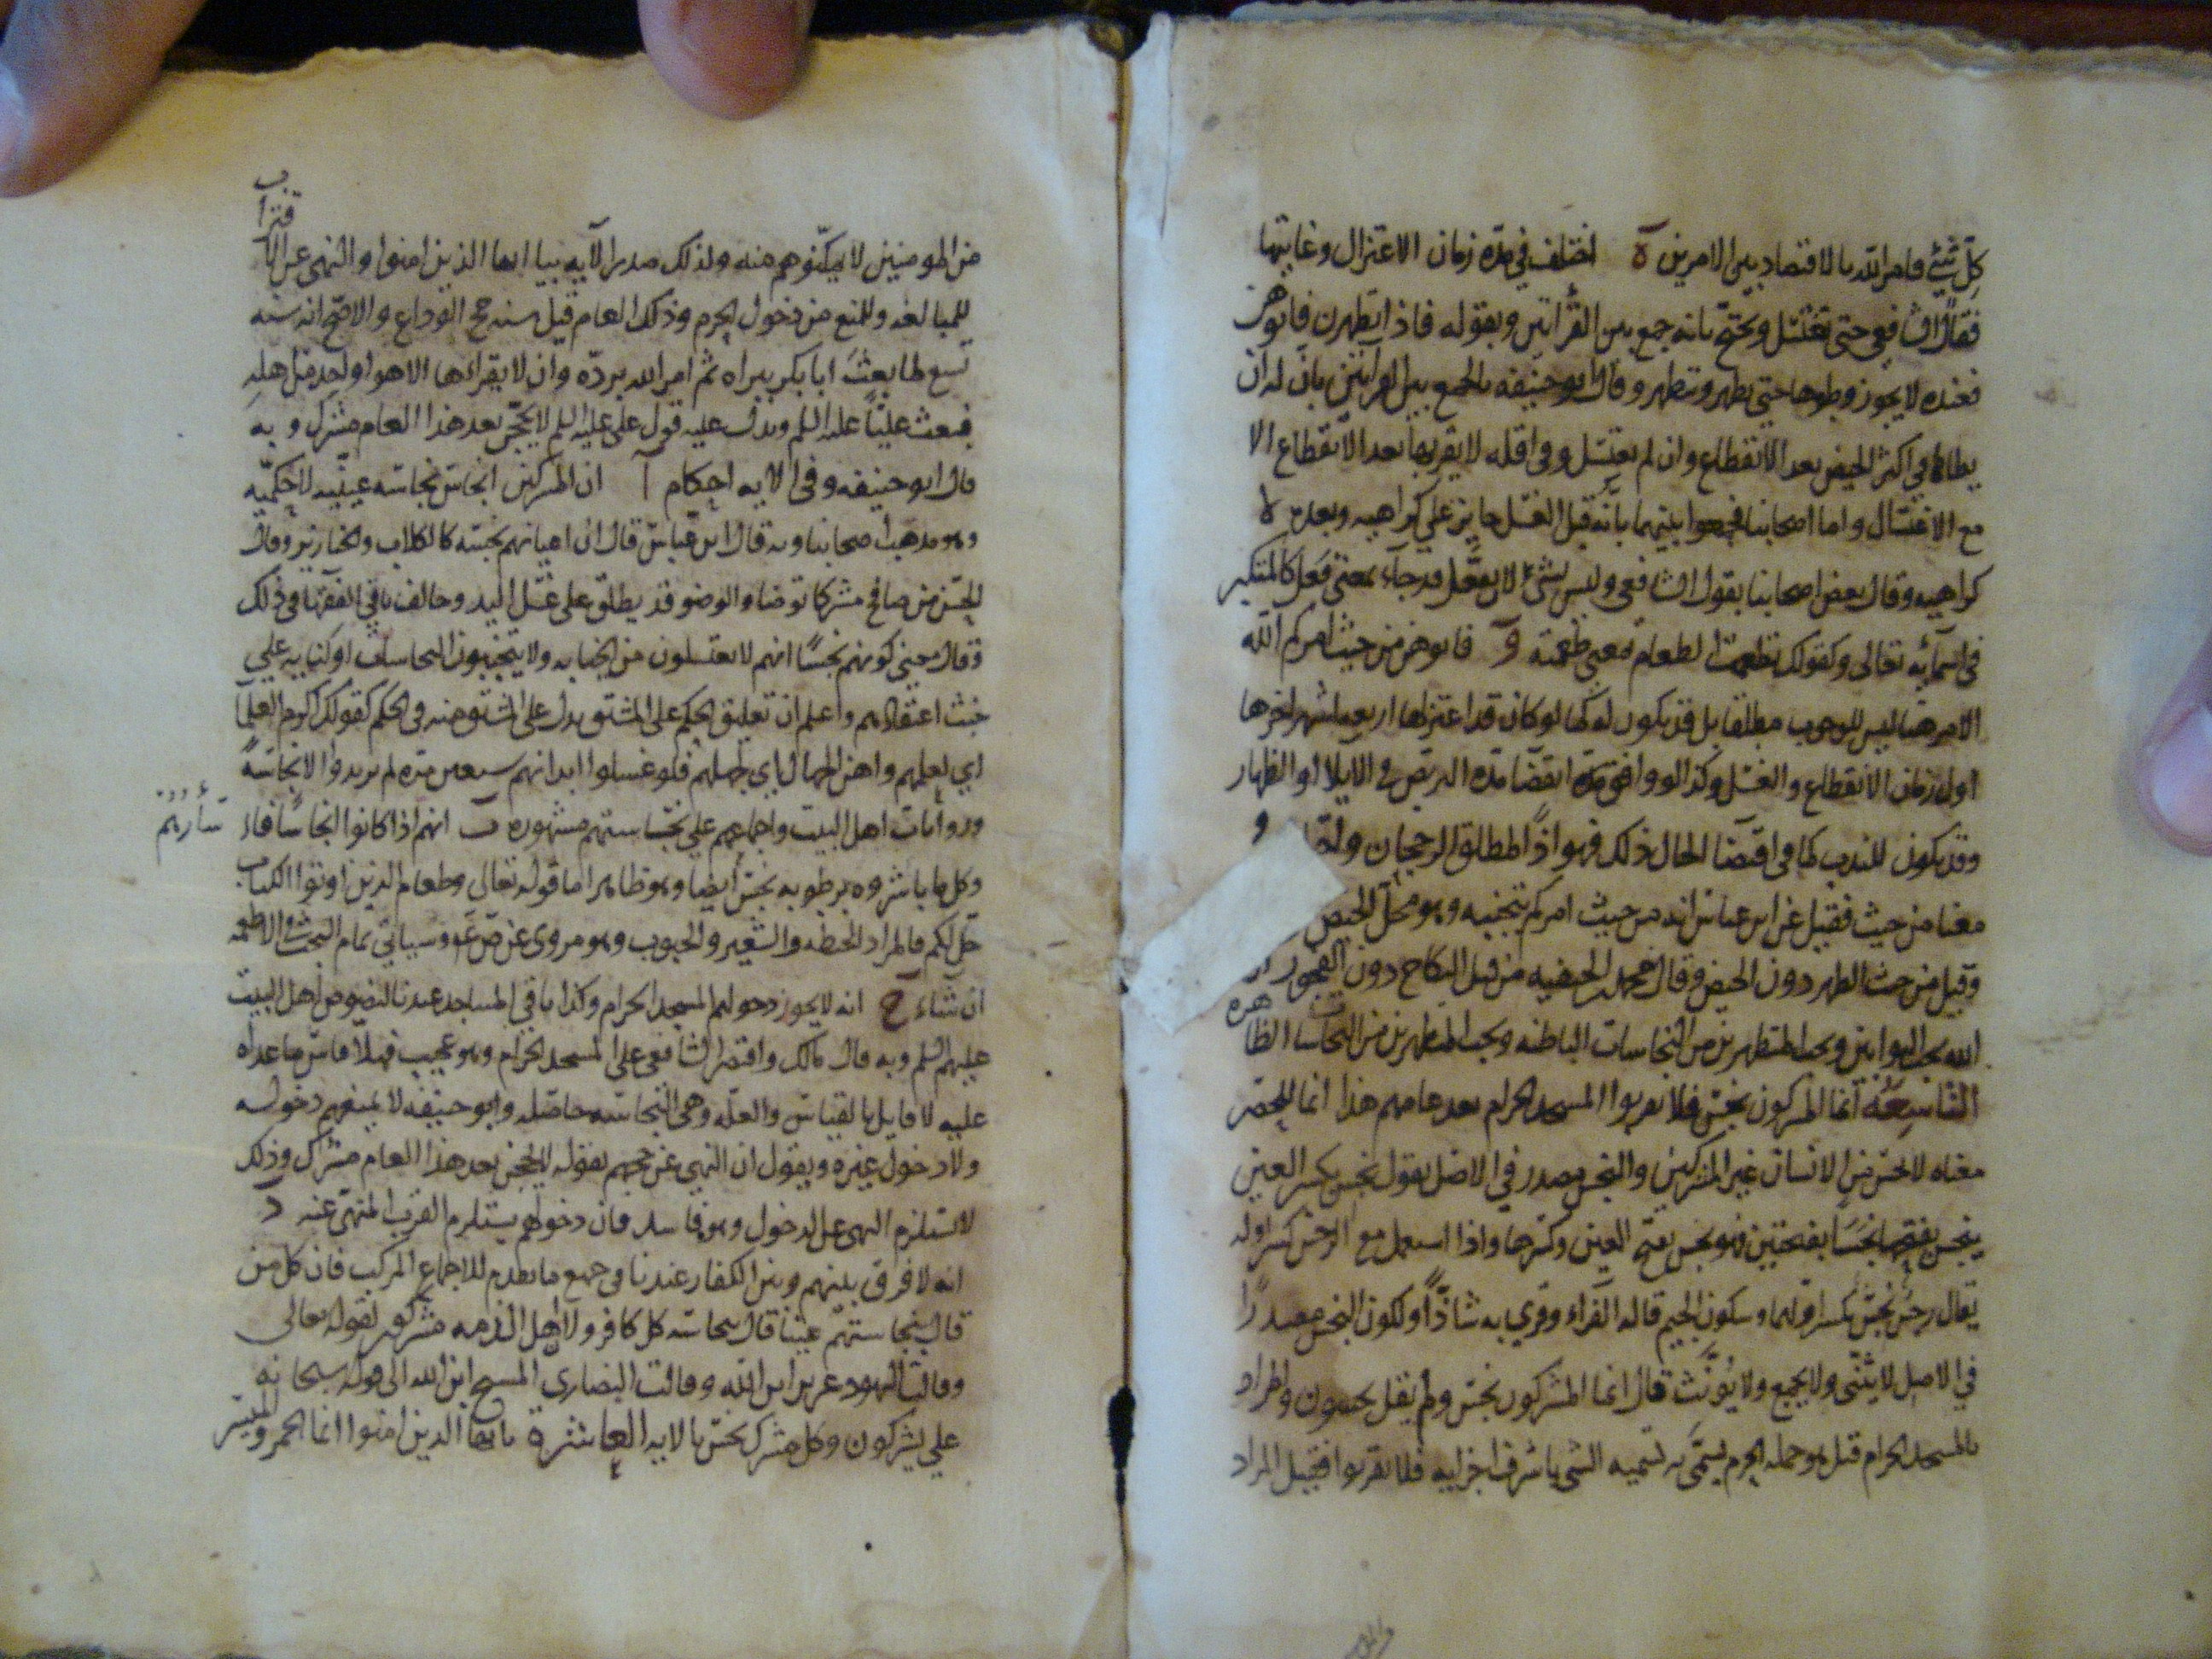 كل شيء فامر الله بالاقتصاد بين الامرين ه اختلف في مدة زمان الاعتزال وغايتها
فقال الشافعي حتى تغتسل ويحتج بانه جمع بين القرأتين وبقوله فاذا تطهرن فاتوهن
فعنده لا يجوز وطوها حتى تطهر وتطهر وقال ابو حنيفه بالجمع بين القرأتين بان له ان
يطاها في اكثر الحيض بعد الانقطاع وان لم تغتسل وفي اقله لا يقربها بعد الانقطاع الا
مع الاغتسال واما اصحابنا فجمعوا بينهما بانه قبل الغسل جايز على كراهيه وبعده لا
كراهيه وقال بعض اصحابنا بقول الشافعي وليس بشيء لان تفعل قد جاء بمعنى فعل كالمتكبر
في اسمآئه تعالى وكقولك تطعمت الطعام بمعنى طعمته و فاتوهن من حيث امركم الله
الامر هنا ليس للوجوب مطلقا بل قد يكون له كما لو كان قد اعتزلها اربعه اشهر اخرها
اول زمان الانقطاع والغسل وكذا لو وافق مدة انقضا مدة التربص في الايلا او الظهار
وقد يكون للندب كما في اقتضا الحال ذلك فهو اذًا لمطلق الرجحان و
معنا من حيث فقيل عن ابن عباس انه من حيث امركم بتجنبه وهو محل الحيض
وقيل من حيث الطهر دون الحيض وقال محمد بن الحنفيه من قبل النكاح دون الفجور ان
الله يحب التوابين ويحب المتطهرين من النجاسات الباطنه ويحب المتطهرين من النجاسات الظاهره
التاسعة انما المشركون نجس فلا يقربوا المسجد الحرام بعد عامهم هذا انما للحصر
معناه لا نجس من الانسان غير المشركين والنجس مصدر في الاصل تقول نجس بكسر العين
ينجس بفتحها نجسًا بفتحتين فهو نجس بفتح العين وكسرها واذا استعمل مع الرجس كسر اوله
يقال رجس نجس بكسر اولهما وسكون الجيم قاله الفراء وقري به شاذًا ولكون النجس مصدرًا
في الاصل لا يثنى ولا يجمع ولا يؤنث قال انما المشركون نجس ولم يقل نجسون والمراد
بالمسجد الحرام قيل هو جمله الحرم يسمى به تسميه الشي باشرف اجزايه فلا يقربوا فقيل المراد
من المومنين لا يمكنوهم منه ولذلك صدر الآيه بيا ايها الذين امنوا والنهى عن الاقتراب
للمبالغه وللمنع من دخول الحرم وذلك العام قيل سنه حج الوداع والاصح انه سنه
تسع لما بعث ابا بكر ببراه ثم امر الله برده وان لا يقراها الا هو او احد من اهله
فبعث عليًا عليه السلم ويدل عليه قول علي عليه السلم لا يحجن بعد هذا العام مشرك وبه
قال ابو حنيفه وفي الايه احكام آ ان المشركين انجاس نجاسه عينيه لا حكميه
وهو مذهب اصحابنا وبه قال ابن عباس قال ان اعيانهم نجسه كالكلاب والخنازير وقال
الحسن من صافح مشركا توضا والوضو قد يطلق على غسل اليد وخالف باقي الفقها في ذلك
وقال معنى كونهم نجسًا انهم لا يغتسلون من الجنابه ولا يتجنبون النجاسات او كنايه على
خبث اعتقادهم واعلم ان تعليق الحكم على المشتق يدل على المشتق منه في الحكم كقولك اكرم العلما
اي لعلمهم واهن الجهال اي لجهلهم فلو غسلوا ابدانهم سبعين مره لم يزيدوا الا نجاسه
وروايات اهل البيت واجماعهم على نجاستهم مشهوره ب انهم اذا كانوا انجاسًا فاء
سأرهم
وكل ما باشروه برطوبه نجس ايضا وهو ظاهر اما قوله تعالى وطعام الذين اوتوا الكتاب
حل لكم فالمراد الحنطه والشعير والحبوب وهو مروي عن ص ع وسياتي تمام البحث في الاطعمه
ان شاء ج انه لا يجوز دخولهم المسجد الحرام وكذا باقي المساجد عندنا لنصوص اهل البيت
عليهم السلم وبه قال مالك واقتصر الشافعي على المسجد الحرام وهو عجيب فهلا قاس ما عداه
عليه لا قايل بالقياس والعله وهي النجاسه حاصله وابو حنيفه لا يمنعهم دخوله
ولا دخول غيره ويقول ان النهي عن حجهم بقوله لا يحجن بعد هذا العام مشرك وذلك
لا يستلزم النهى عن الدخول وهو فاسد فان دخولهم يستلزم القرب المنهى عنه د
انه لا فرق بينهم وبين الكفار عندنا في جميع ما تقدم للاجماع المركب فان كل من
قال بنجاستهم عينا قال بنجاسه كل كافر ولان اهل الذمه مشركون لقوله تعالى
وقالت اليهود عزير ابن الله وقالت النصارى المسيح ابن الله الى قوله سبحانه
على يشركون وكل مشرك نجس بالايه العاشرة يا ايها الذين امنوا انما الخمر والميسر